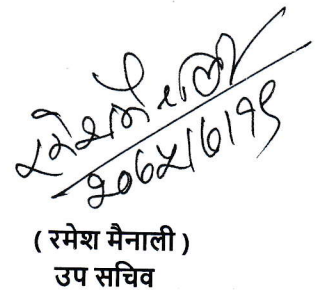 रमेश मैनाली
२०७५।७।१९
( रमेश मैनाली )
उप सचिव